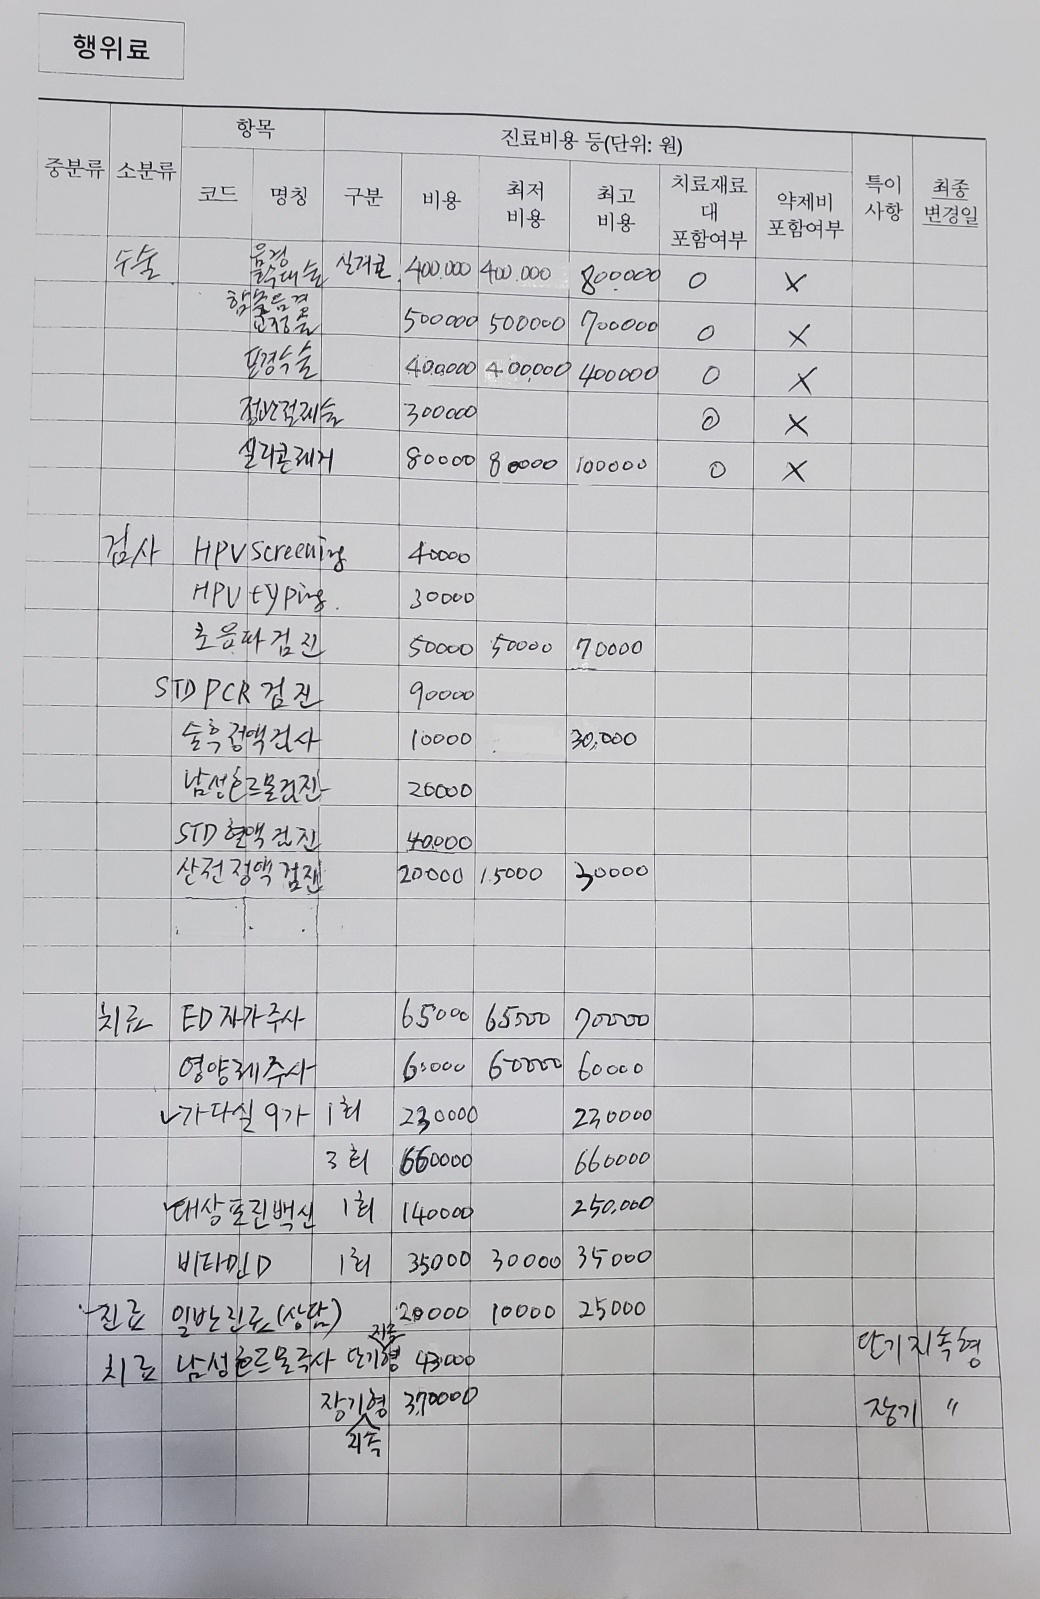 행위료
중분류 소분류 항목 진료비용 등(단위: 원) 특이사항 최종변경일
코드 명칭 구분 비용 최저비용 최고비용 치료재료대 포함여부 약제비 포함여부
수술 음경확대술 실리콘 400.000 400.000 800000 O X
함몰음경교정술 500000 500000 700000 O X
포경수술 400000 400.000 400000 O X
정관절제술 300000 O X
실리콘제거 80000 80000 100000 O X
검사 HPV screening 40000
HPV typing. 30000
초음파검진 50000 50000 70000
STD PCR 검진 90000
술후정액검사 10000 30,000
남성호르몬검진 20000
STD 혈액검진 40.000
산전정액검진 20000 15000 30000
치료 ED자가주사 65000 65000 70000
영양제주사 60000 60000 60000
✓가다실 9가 1회 230000 230000
3회 660000 660000
✓대상포진백신 1회 140000 250.000
비타민D 1회 35000 30000 35000
✓진료 일반진료(상담) 20000 10000 25000
치료 남성호르몬주사 단기지속형 43000 단기지속형
장기지속형 370000 장기 〃